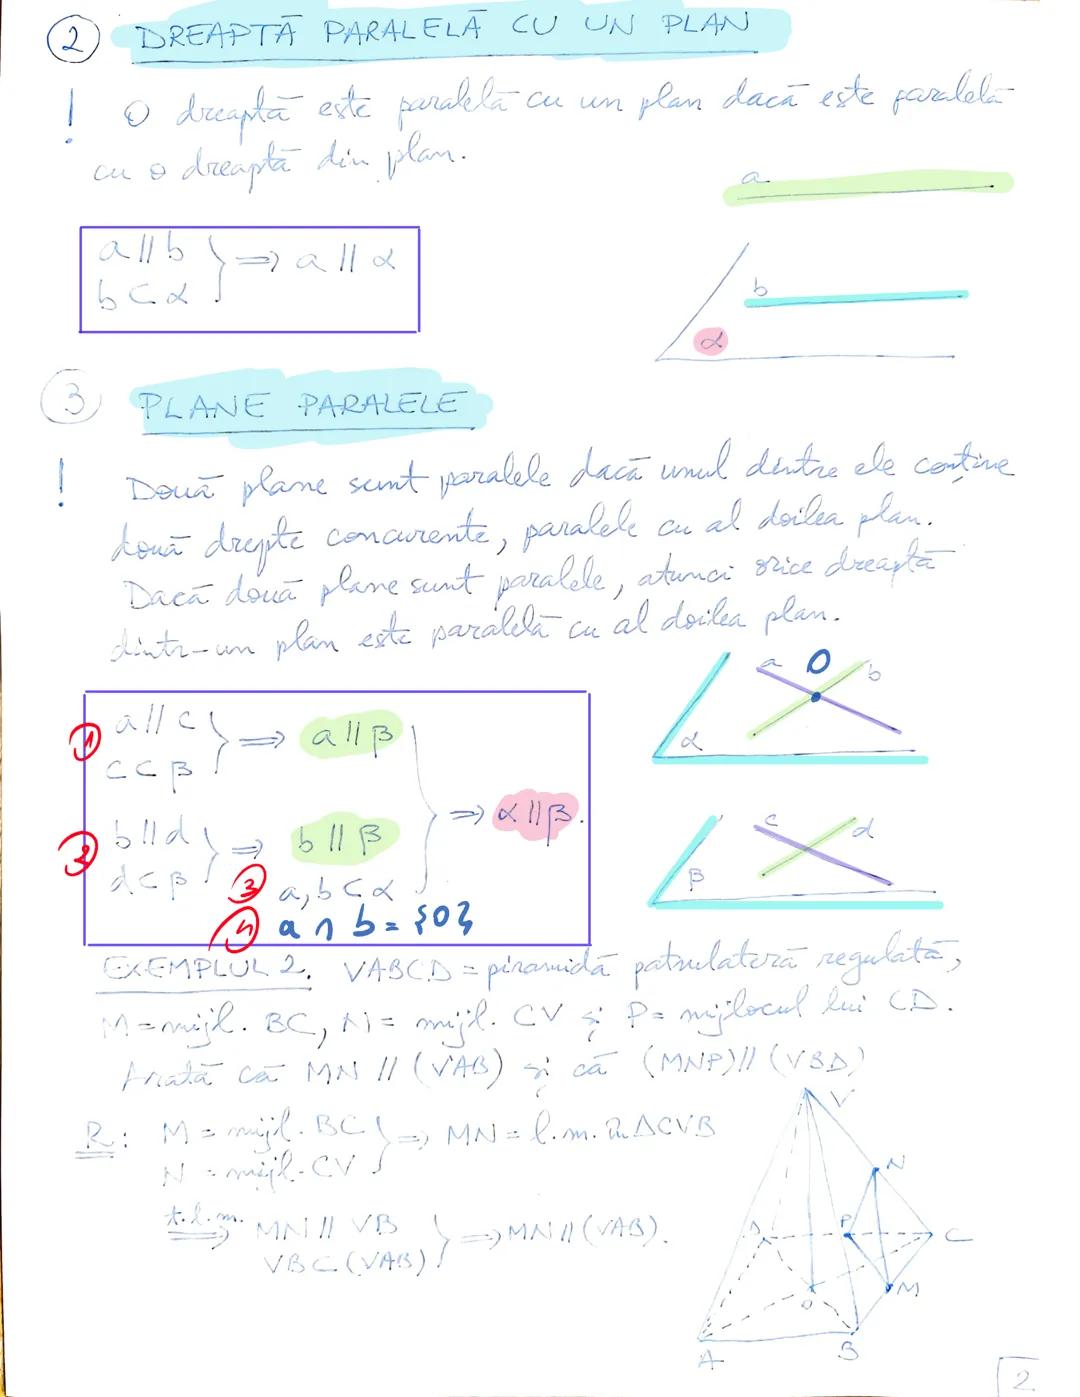 2 DREAPTĂ PARALELĂ CU UN PLAN
! O dreaptă este paralelă cu un plan dacă este paralelă
cu o dreaptă din plan.
a
a ∥ b
b ⊂ α } ⇒ a ∥ α
b
α
3 PLANE PARALELE
! Două plane sunt paralele dacă unul dintre ele conține
două drepte concurente, paralele cu al doilea plan.
Dacă două plane sunt paralele, atunci orice dreaptă
dintr-un plan este paralelă cu al doilea plan.
a O b
α
1 a ∥ c
c ⊂ β } ⇒ a ∥ β
2 b ∥ d
d ⊂ β } ⇒ b ∥ β
3 a, b ⊂ α
4 a ∩ b = {O}
} ⇒ α ∥ β.
c d
β
EXEMPLUL 2. VABCD = piramidă patrulateră regulată,
M = mijl. BC, N = mijl. CV și P = mijlocul lui CD.
Arată că MN ∥ (VAB) și că (MNP) ∥ (VBD)
R: M = mijl. BC
N = mijl. CV } ⇒ MN = l.m. în ΔCVB
t.l.m. ⇒ MN ∥ VB
VB ⊂ (VAB) } ⇒ MN ∥ (VAB).
V
N
D P C
O M
A B
2